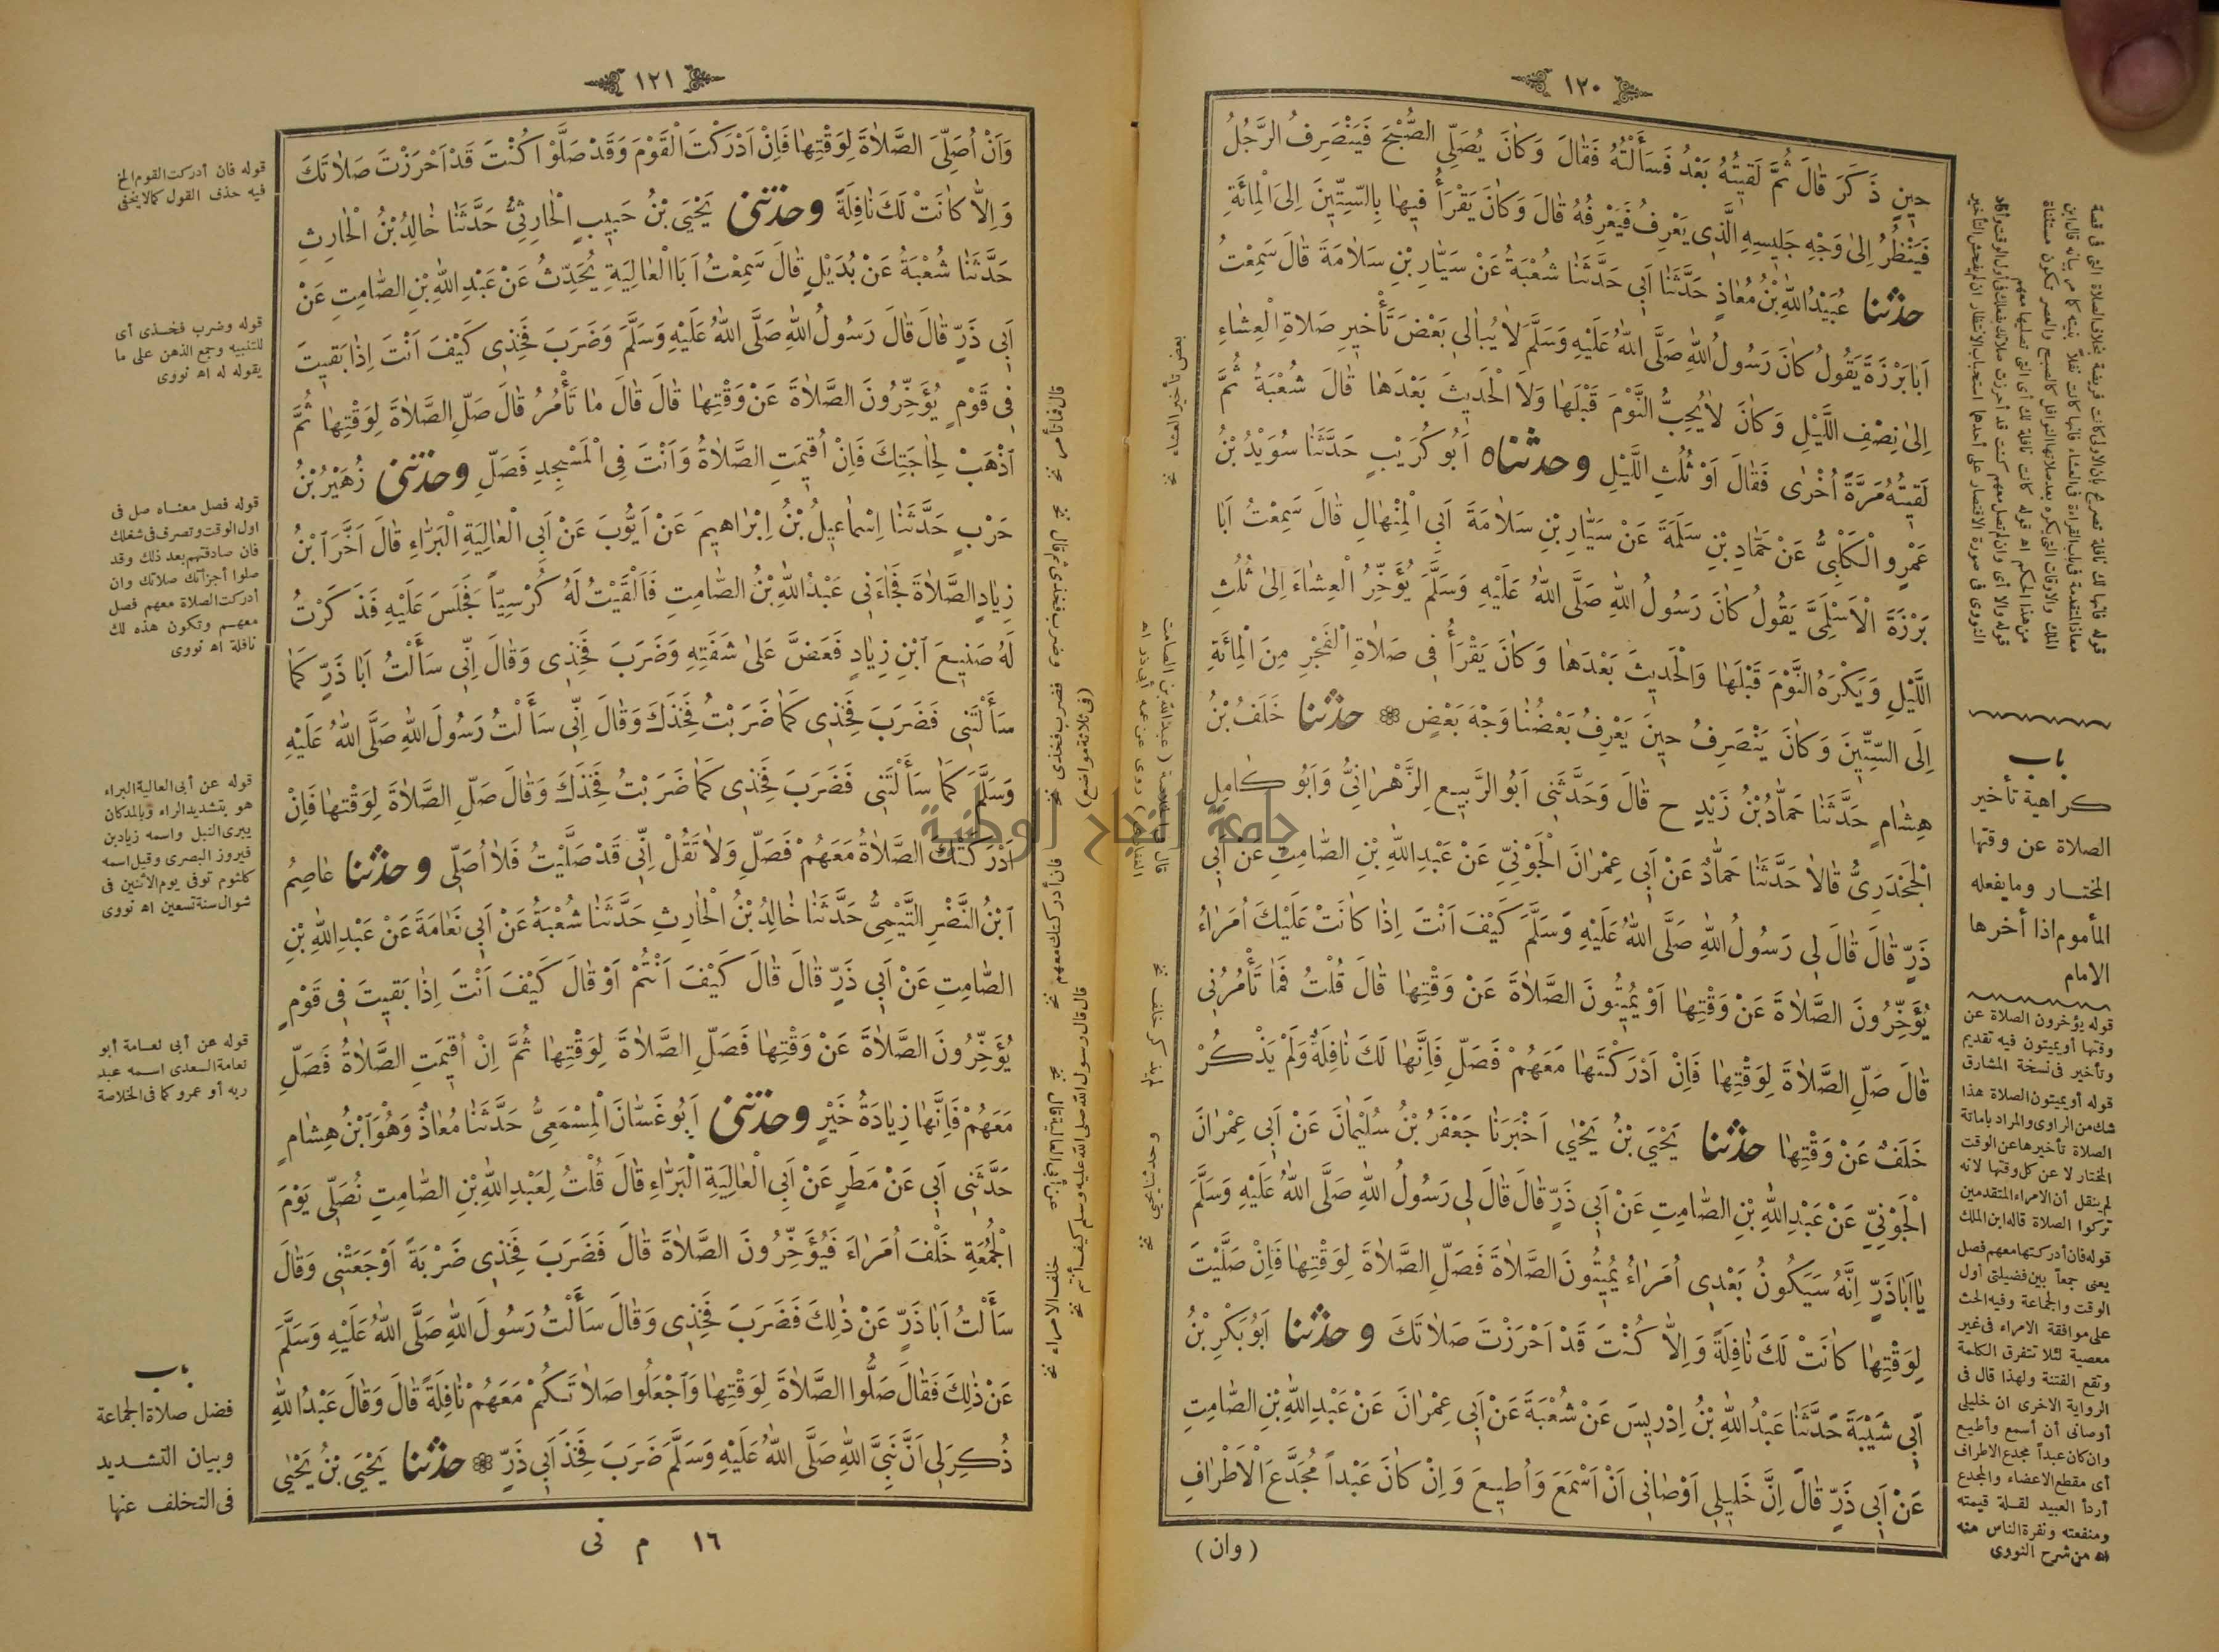 ١٢٠
حِينَ ذَكَرَ قَالَ ثُمَّ لَقِيتُهُ بَعْدُ فَسَأَلْتُهُ فَقَالَ وَكَانَ يُصَلِّي الصُّبْحَ فَيَنْصَرِفُ الرَّجُلُ
فَيَنْظُرُ اِلَى وَجْهِ جَلِيسِهِ الَّذِي يَعْرِفُ فَيَعْرِفُهُ قَالَ وَكَانَ يَقْرَأُ فِيهَا بِالسِّتِّينَ اِلَى الْمِائَةِ
حدثنا عُبَيْدُاللهِ بْنُ مُعَاذٍ حَدَّثَنَا اَبِي حَدَّثَنَا شُعْبَةُ عَنْ سَيَّارِ بْنِ سَلَامَةَ قَالَ سَمِعْتُ
اَبَا بَرْزَةَ يَقُولُ كَانَ رَسُولُ اللهِ صَلَّى اللهُ عَلَيْهِ وَسَلَّمَ لَا يُبَالِي بَعْضَ تَأْخِيرِ صَلَاةِ الْعِشَاءِ
اِلَى نِصْفِ اللَّيْلِ وَكَانَ لَا يُحِبُّ النَّوْمَ قَبْلَهَا وَلَا الْحَدِيثَ بَعْدَهَا قَالَ شُعْبَةُ ثُمَّ
لَقِيتُهُ مَرَّةً اُخْرَى فَقَالَ اَوْ ثُلُثِ اللَّيْلِ وحدثناه اَبُو كُرَيْبٍ حَدَّثَنَا سُوَيْدُ بْنُ
عَمْرٍو الْكَلْبِيُّ عَنْ حَمَّادِ بْنِ سَلَمَةَ عَنْ سَيَّارِ بْنِ سَلَامَةَ اَبِي الْمِنْهَالِ قَالَ سَمِعْتُ اَبَا
بَرْزَةَ الْاَسْلَمِيَّ يَقُولُ كَانَ رَسُولُ اللهِ صَلَّى اللهُ عَلَيْهِ وَسَلَّمَ يُؤَخِّرُ الْعِشَاءَ اِلَى ثُلُثِ
اللَّيْلِ وَيَكْرَهُ النَّوْمَ قَبْلَهَا وَالْحَدِيثَ بَعْدَهَا وَكَانَ يَقْرَأُ فِي صَلَاةِ الْفَجْرِ مِنَ الْمِائَةِ
اِلَى السِّتِّينَ وَكَانَ يَنْصَرِفُ حِينَ يَعْرِفُ بَعْضُنَا وَجْهَ بَعْضٍ حدثنا خَلَفُ بْنُ
هِشَامٍ حَدَّثَنَا حَمَّادُ بْنُ زَيْدٍ ح قَالَ وَحَدَّثَنِي اَبُو الرَّبِيعِ الزَّهْرَانِيُّ وَاَبُو كَامِلٍ
الْجَحْدَرِيُّ قَالَا حَدَّثَنَا حَمَّادٌ عَنْ اَبِي عِمْرَانَ الْجَوْنِيِّ عَنْ عَبْدِ اللهِ بْنِ الصَّامِتِ عَنْ اَبِي
ذَرٍّ قَالَ قَالَ لِي رَسُولُ اللهِ صَلَّى اللهُ عَلَيْهِ وَسَلَّمَ كَيْفَ اَنْتَ اِذَا كَانَتْ عَلَيْكَ اُمَرَاءُ
يُؤَخِّرُونَ الصَّلَاةَ عَنْ وَقْتِهَا اَوْ يُمِيتُونَ الصَّلَاةَ عَنْ وَقْتِهَا قَالَ قُلْتُ فَمَا تَأْمُرُنِي
قَالَ صَلِّ الصَّلَاةَ لِوَقْتِهَا فَاِنْ اَدْرَكْتَهَا مَعَهُمْ فَصَلِّ فَاِنَّهَا لَكَ نَافِلَةٌ وَلَمْ يَذْكُرْ
خَلَفٌ عَنْ وَقْتِهَا حدثنا يَحْيَى بْنُ يَحْيَى اَخْبَرَنَا جَعْفَرُ بْنُ سُلَيْمَانَ عَنْ اَبِي عِمْرَانَ
الْجَوْنِيِّ عَنْ عَبْدِ اللهِ بْنِ الصَّامِتِ عَنْ اَبِي ذَرٍّ قَالَ قَالَ لِي رَسُولُ اللهِ صَلَّى اللهُ عَلَيْهِ وَسَلَّمَ
يَا اَبَا ذَرٍّ اِنَّهُ سَيَكُونُ بَعْدِي اُمَرَاءُ يُمِيتُونَ الصَّلَاةَ فَصَلِّ الصَّلَاةَ لِوَقْتِهَا فَاِنْ صَلَّيْتَ
لِوَقْتِهَا كَانَتْ لَكَ نَافِلَةً وَاِلَّا كُنْتَ قَدْ اَحْرَزْتَ صَلَاتَكَ وحدثنا اَبُو بَكْرِ بْنُ
اَبِي شَيْبَةَ حَدَّثَنَا عَبْدُ اللهِ بْنُ اِدْرِيسَ عَنْ شُعْبَةَ عَنْ اَبِي عِمْرَانَ عَنْ عَبْدِ اللهِ بْنِ الصَّامِتِ
عَنْ اَبِي ذَرٍّ قَالَ اِنَّ خَلِيلِي اَوْصَانِي اَنْ اَسْمَعَ وَاُطِيعَ وَاِنْ كَانَ عَبْداً مُجَدَّعَ الْاَطْرَافِ
(وان)
باب
كراهية تأخير
الصلاة عن وقتها
المختار وما يفعله
المأموم اذا أخرها
الامام
قوله يؤخرون الصلاة عن
وقتها أو يميتون فيه تقديم
وتأخير فى نسخة المشارق
قوله أو يميتون الصلاة هذا
شك من الراوى والمراد باماتة
الصلاة تأخيرها عن الوقت
المختار لا عن كل وقتها لانه
لم ينقل أن الامراء المتقدمين
تركوا الصلاة قاله ابن الملك
قوله فان أدركتها معهم فصل
يعنى جمعاً بين فضيلتى أول
الوقت والجماعة وفيه الحث
على موافقة الامراء فى غير
معصية لئلا تتفرق الكلمة
وتقع الفتنة ولهذا قال فى
الرواية الاخرى ان خليلى
أوصانى أن أسمع وأطيع
وان كان عبداً مجدع الاطراف
أى مقطع الاعضاء والمجدع
أردأ العبيد لقلة قيمته
ومنفعته ونفرة الناس منه
اه من شرح النووى
بعض تأخير العشاء نخ
لم يذكر خلف نخ
وحدثنا يحيى نخ
جامعة النجاح الوطنية
١٢١
وَاَنْ اُصَلِّيَ الصَّلَاةَ لِوَقْتِهَا فَاِنْ اَدْرَكْتَ الْقَوْمَ وَقَدْ صَلَّوْا كُنْتَ قَدْ اَحْرَزْتَ صَلَاتَكَ
وَاِلَّا كَانَتْ لَكَ نَافِلَةً وحدثنى يَحْيَى بْنُ حَبِيبٍ الْحَارِثِيُّ حَدَّثَنَا خَالِدُ بْنُ الْحَارِثِ
حَدَّثَنَا شُعْبَةُ عَنْ بُدَيْلٍ قَالَ سَمِعْتُ اَبَا الْعَالِيَةِ يُحَدِّثُ عَنْ عَبْدِ اللهِ بْنِ الصَّامِتِ عَنْ
اَبِي ذَرٍّ قَالَ قَالَ رَسُولُ اللهِ صَلَّى اللهُ عَلَيْهِ وَسَلَّمَ وَضَرَبَ فَخِذِي كَيْفَ اَنْتَ اِذَا بَقِيتَ
فِي قَوْمٍ يُؤَخِّرُونَ الصَّلَاةَ عَنْ وَقْتِهَا قَالَ قَالَ مَا تَأْمُرُ قَالَ صَلِّ الصَّلَاةَ لِوَقْتِهَا ثُمَّ
اَذْهَبْ لِحَاجَتِكَ فَاِنْ اُقِيمَتِ الصَّلَاةُ وَاَنْتَ فِي الْمَسْجِدِ فَصَلِّ وحدثنى زُهَيْرُ بْنُ
حَرْبٍ حَدَّثَنَا اِسْمَاعِيلُ بْنُ اِبْرَاهِيمَ عَنْ اَيُّوبَ عَنْ اَبِي الْعَالِيَةِ الْبَرَّاءِ قَالَ اَخَّرَ ابْنُ
زِيَادٍ الصَّلَاةَ فَجَاءَنِي عَبْدُ اللهِ بْنُ الصَّامِتِ فَاَلْقَيْتُ لَهُ كُرْسِيّاً فَجَلَسَ عَلَيْهِ فَذَكَرْتُ
لَهُ صَنِيعَ ابْنِ زِيَادٍ فَعَضَّ عَلَى شَفَتِهِ وَضَرَبَ فَخِذِي وَقَالَ اِنِّي سَأَلْتُ اَبَا ذَرٍّ كَمَا
سَأَلْتَنِي فَضَرَبَ فَخِذِي كَمَا ضَرَبْتُ فَخِذَكَ وَقَالَ اِنِّي سَأَلْتُ رَسُولَ اللهِ صَلَّى اللهُ عَلَيْهِ
وَسَلَّمَ كَمَا سَأَلْتَنِي فَضَرَبَ فَخِذِي كَمَا ضَرَبْتُ فَخِذَكَ وَقَالَ صَلِّ الصَّلَاةَ لِوَقْتِهَا فَاِنْ
اَدْرَكَتْكَ الصَّلَاةُ مَعَهُمْ فَصَلِّ وَلَا تَقُلْ اِنِّي قَدْ صَلَّيْتُ فَلَا اُصَلِّي وحدثنا عَاصِمُ
ابْنُ النَّضْرِ التَّيْمِيُّ حَدَّثَنَا خَالِدُ بْنُ الْحَارِثِ حَدَّثَنَا شُعْبَةُ عَنْ اَبِي نَعَامَةَ عَنْ عَبْدِ اللهِ بْنِ
الصَّامِتِ عَنْ اَبِي ذَرٍّ قَالَ قَالَ كَيْفَ اَنْتُمْ اَوْ قَالَ كَيْفَ اَنْتَ اِذَا بَقِيتَ فِي قَوْمٍ
يُؤَخِّرُونَ الصَّلَاةَ عَنْ وَقْتِهَا فَصَلِّ الصَّلَاةَ لِوَقْتِهَا ثُمَّ اِنْ اُقِيمَتِ الصَّلَاةُ فَصَلِّ
مَعَهُمْ فَاِنَّهَا زِيَادَةُ خَيْرٍ وحدثنى اَبُو غَسَّانَ الْمِسْمَعِيُّ حَدَّثَنَا مُعَاذٌ وَهُوَ ابْنُ هِشَامٍ
حَدَّثَنِي اَبِي عَنْ مَطَرٍ عَنْ اَبِي الْعَالِيَةِ الْبَرَّاءِ قَالَ قُلْتُ لِعَبْدِ اللهِ بْنِ الصَّامِتِ نُصَلِّي يَوْمَ
الْجُمُعَةِ خَلْفَ اُمَرَاءَ فَيُؤَخِّرُونَ الصَّلَاةَ قَالَ فَضَرَبَ فَخِذِي ضَرْبَةً اَوْجَعَتْنِي وَقَالَ
سَأَلْتُ اَبَا ذَرٍّ عَنْ ذَلِكَ فَضَرَبَ فَخِذِي وَقَالَ سَأَلْتُ رَسُولَ اللهِ صَلَّى اللهُ عَلَيْهِ وَسَلَّمَ
عَنْ ذَلِكَ فَقَالَ صَلُّوا الصَّلَاةَ لِوَقْتِهَا وَاجْعَلُوا صَلَاتَكُمْ مَعَهُمْ نَافِلَةً قَالَ وَقَالَ عَبْدُ اللهِ
ذُكِرَ لِي اَنَّ نَبِيَّ اللهِ صَلَّى اللهُ عَلَيْهِ وَسَلَّمَ ضَرَبَ فَخِذَ اَبِي ذَرٍّ حدثنا يَحْيَى بْنُ يَحْيَى
١٦ م نى
قوله فان أدركت القوم الخ
فيه حذف القول كما لا يخفى
قوله وضرب فخذى أى
للتنبيه وجمع الذهن على ما
يقوله له اه نووى
قوله فصل معناه صل فى
اول الوقت وتصرف فى شغلك
فان صادفتهم بعد ذلك وقد
صلوا أجزأتك صلاتك وان
أدركت الصلاة معهم فصل
معهم وتكون هذه لك
نافلة اه نووى
قوله عن أبى العالية البراء
هو بتشديد الراء وبالمد كان
يبرى النبل واسمه زياد بن
فيروز البصرى وقيل اسمه
كلثوم توفى يوم الاثنين فى
شوال سنة تسعين اه نووى
قوله عن أبى نعامة أبو
نعامة السعدى اسمه عبد
ربه أو عمرو كما فى الخلاصة
باب
فضل صلاة الجماعة
وبيان التشديد
فى التخلف عنها
قال فما تأمر نخ
فان أدركتك معهم نخ
خلف الامراء نخ
(فى ثلاثة مواضع)
قال قال رسول الله صلى الله عليه وسلم كيف أنتم نخ